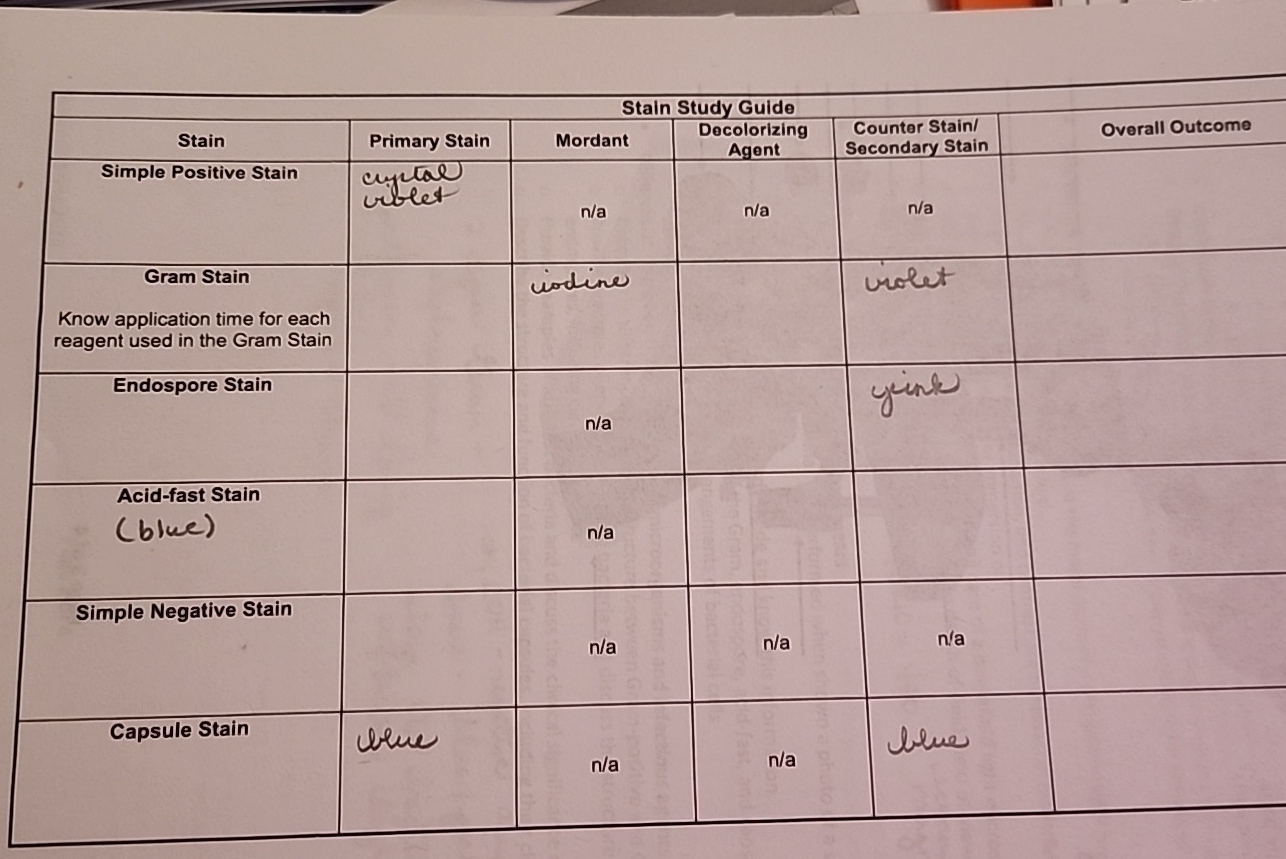 Stain Study Guide
Stain Primary Stain Mordant Decolorizing Agent Counter Stain/ Secondary Stain Overall Outcome
Simple Positive Stain crystal violet n/a n/a n/a
Gram Stain iodine violet
Know application time for each
reagent used in the Gram Stain
Endospore Stain n/a pink
Acid-fast Stain n/a
(blue)
Simple Negative Stain n/a n/a n/a
Capsule Stain blue n/a n/a blue